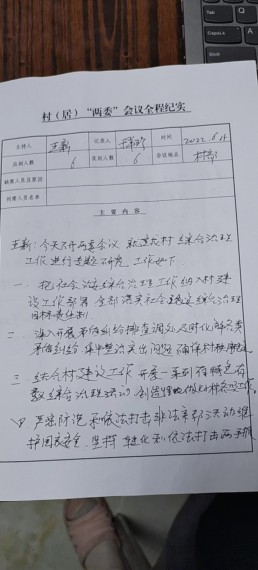 村（居）“两委”会议全程纪实
主持人 王新 记录人 时间 2022.6.
应到人数 6 实到人数 6 会议地点 村部
缺席人员及原因
列席人员名单
主要内容
王新：今天召开两委会议 就我村综合治理
工作进行专题研究 工作如下
一、把社会治安综合治理工作纳入村建
设工作部署 全部落实社会稳定综合治理
目标责任制
二 深入开展矛盾纠纷排查调处及时化解各类
矛盾纠纷 集中整治突出问题 确保村
三 结合村建设工作 开展一系列有特色有
综合治理活动
四 严密防范和依法打击非法宗教活动维
护国家安全 坚持 依法打击